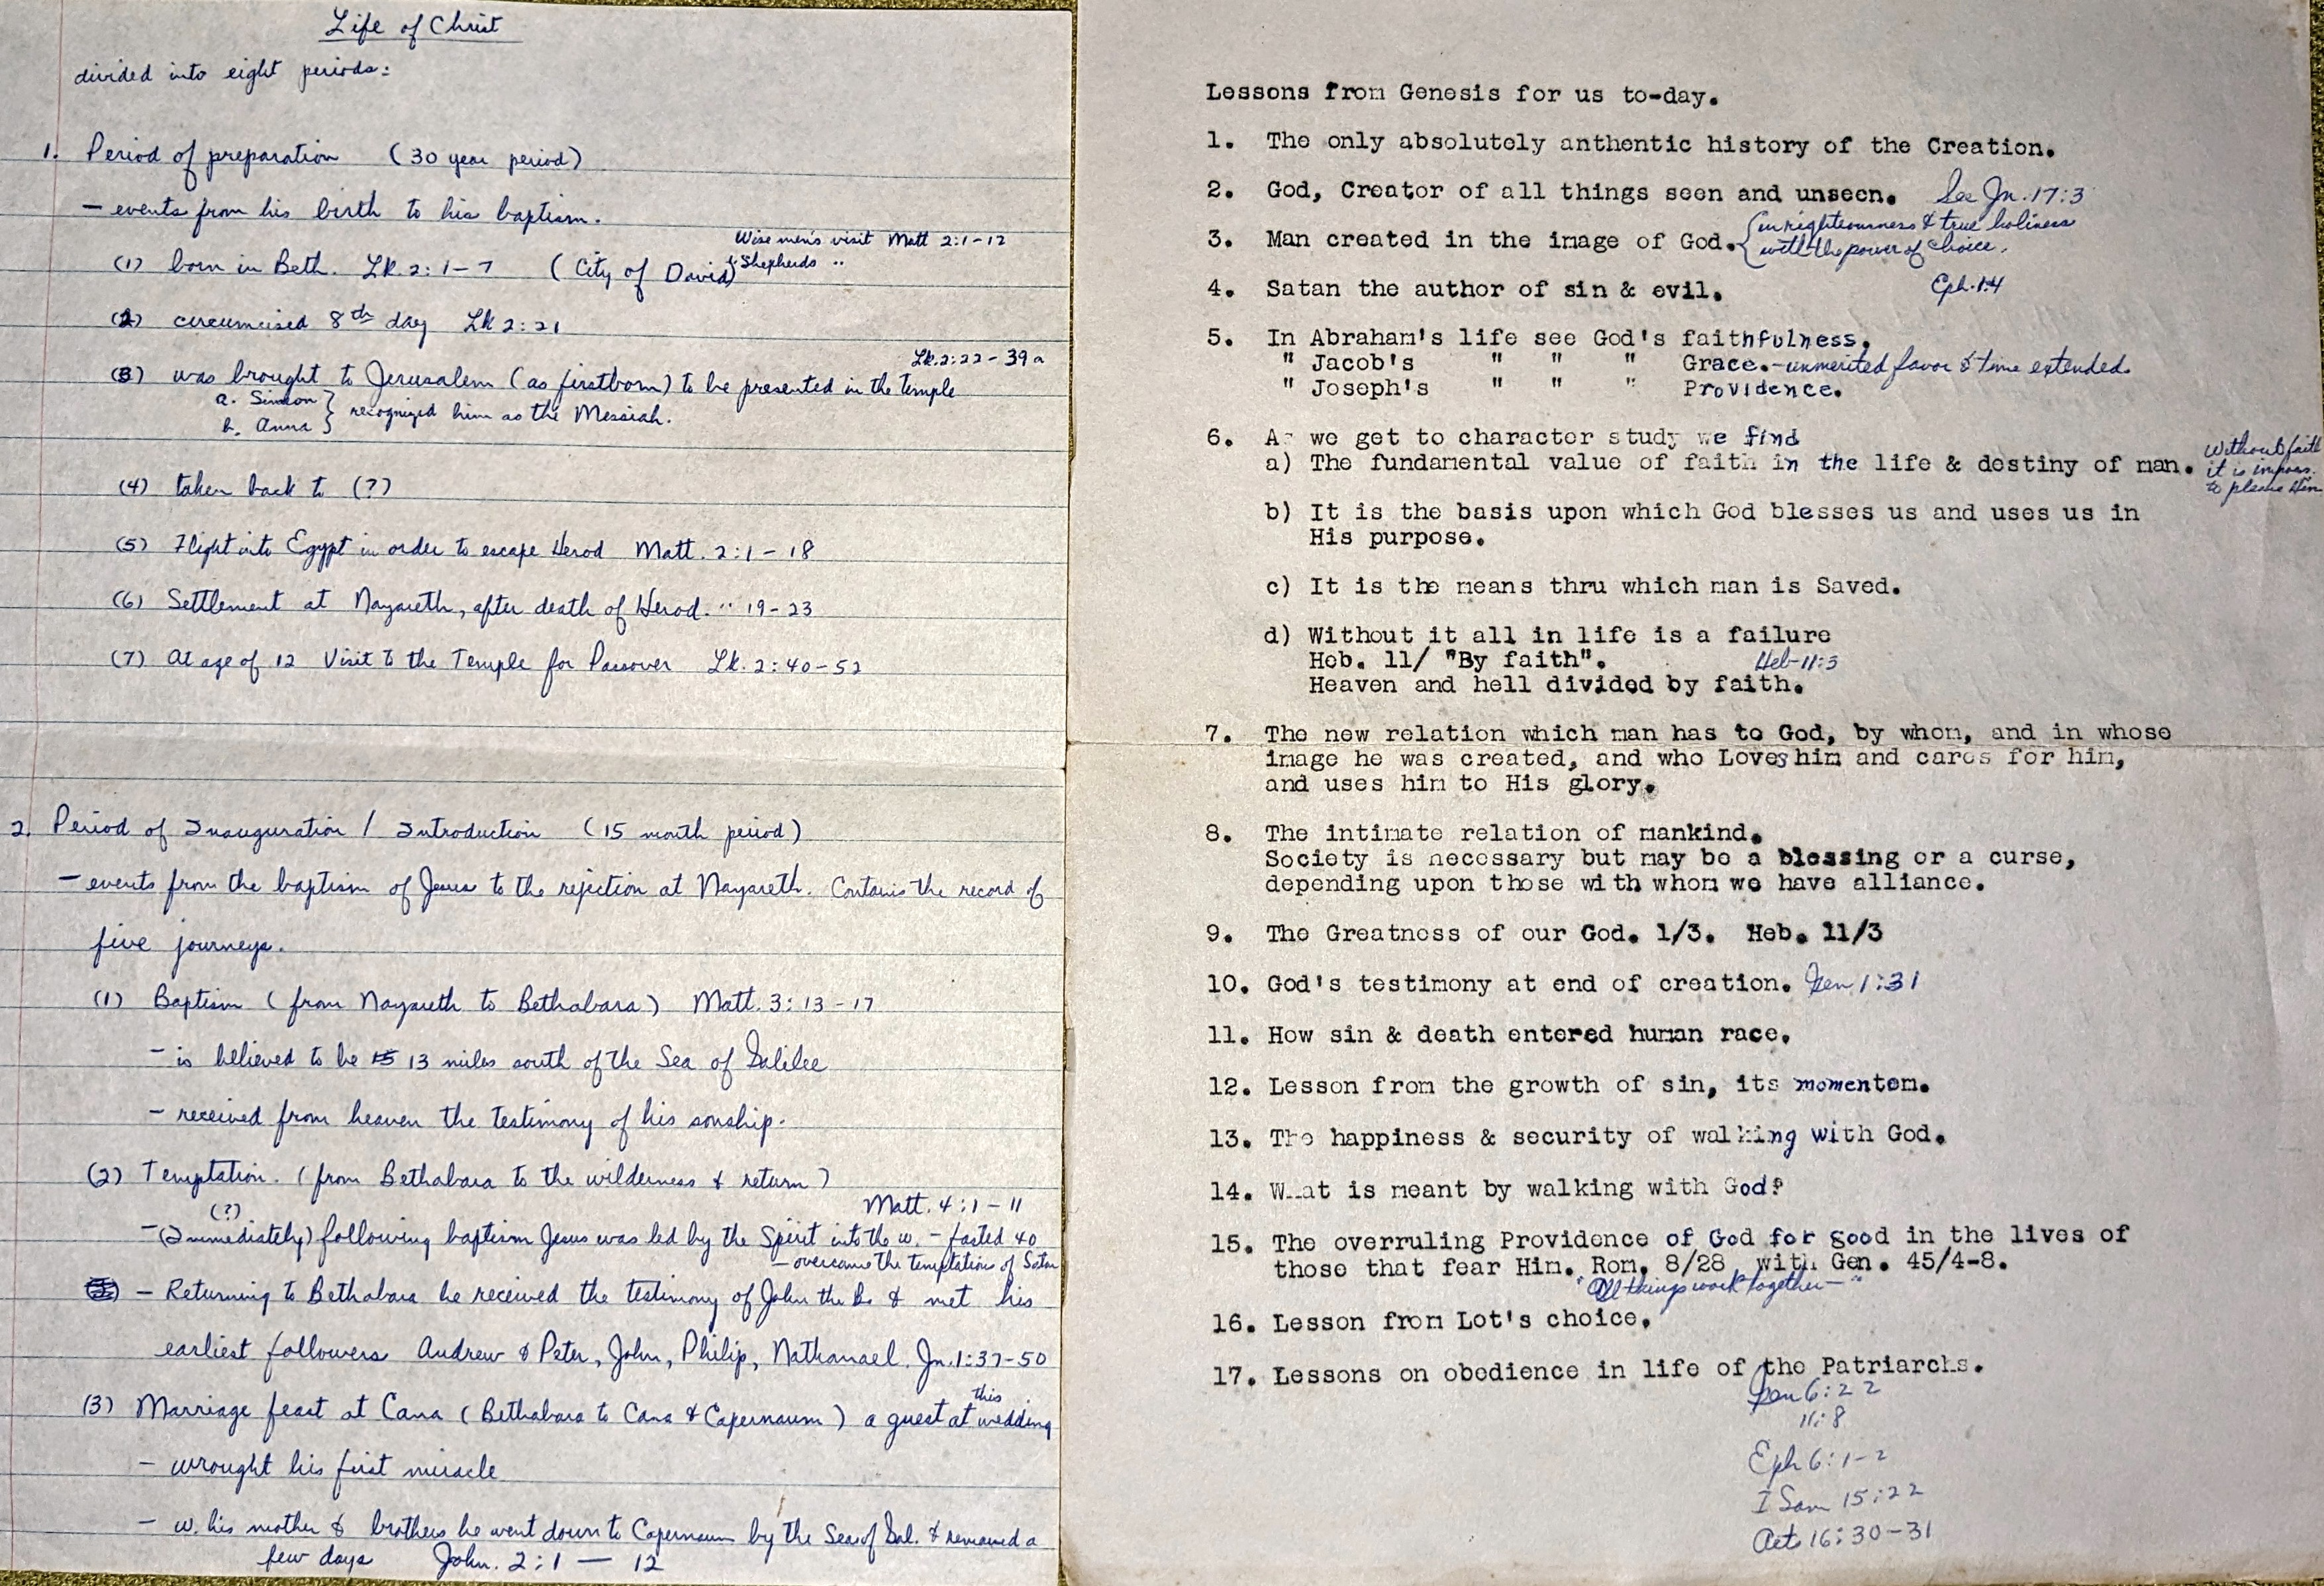 Life of Christ
divided into eight periods:
1. Period of preparation (30 year period)
- events from his birth to his baptism.
Wise men's visit Matt 2:1-12
(1) born in Beth. Lk. 2:1-7 (City of David) "Shepherds "
(2) circumcised 8th day Lk 2:21
Lk. 2:22-39a
(3) was brought to Jerusalem (as firstborn) to be presented in the temple
a. Simeon
b. Anna } recognized him as the Messiah.
(4) taken back to (?)
(5) Flight into Egypt in order to escape Herod Matt. 2:1-18
(6) Settlement at Nazareth, after death of Herod. " 19-23
(7) At age of 12 Visit to the Temple for Passover Lk. 2:40-52
2. Period of Inauguration / Introduction (15 month period)
- events from the baptism of Jesus to the rejection at Nazareth. Contains the record of
five journeys.
(1) Baptism (from Nazareth to Bethabara) Matt. 3:13-17
- is believed to be 13 miles south of the Sea of Galilee
- received from heaven the testimony of his sonship.
(2) Temptation. (from Bethabara to the wilderness & return)
Matt. 4:1-11
(?)
- (Immediately) following baptism Jesus was led by the Spirit into the w. - fasted 40
- overcame the temptations of Satan
- Returning to Bethabara he received the testimony of John the B. & met his
earliest followers Andrew & Peter, John, Philip, Nathanael. Jn. 1:37-50
(3) Marriage feast at Cana (Bethabara to Cana & Capernaum) a guest at this wedding
- wrought his first miracle
- w. his mother & brothers he went down to Capernaum by the Sea of Gal. & remained a
few days John. 2:1 - 12
Lessons from Genesis for us to-day.
1. The only absolutely anthentic history of the Creation.
2. God, Creator of all things seen and unseen. See Jn. 17:3
3. Man created in the image of God. { in righteousness & true holiness
with the power of choice.
4. Satan the author of sin & evil. Eph. 1:4
5. In Abraham's life see God's faithfulness.
" Jacob's " " " Grace. - unmerited favor & time extended.
" Joseph's " " " Providence.
6. As we get to character study we find
a) The fundamental value of faith in the life & destiny of man.
Without faith
it is imposs.
to please Him
b) It is the basis upon which God blesses us and uses us in
His purpose.
c) It is the means thru which man is Saved.
d) Without it all in life is a failure
Heb. 11/ "By faith". Heb-11:3
Heaven and hell divided by faith.
7. The new relation which man has to God, by whom, and in whose
image he was created, and who Loves him and cares for him,
and uses him to His glory.
8. The intimate relation of mankind.
Society is necessary but may be a blessing or a curse,
depending upon those with whom we have alliance.
9. The Greatness of our God. 1/3. Heb. 11/3
10. God's testimony at end of creation. Gen 1:31
11. How sin & death entered human race.
12. Lesson from the growth of sin, its momentem.
13. The happiness & security of walking with God.
14. What is meant by walking with God?
15. The overruling Providence of God for good in the lives of
those that fear Him. Rom. 8/28 with Gen. 45/4-8.
"All things work together - "
16. Lesson from Lot's choice.
17. Lessons on obedience in life of the Patriarchs.
Gen 6:22
11:8
Eph 6:1-2
I Sam 15:22
Acts 16:30-31